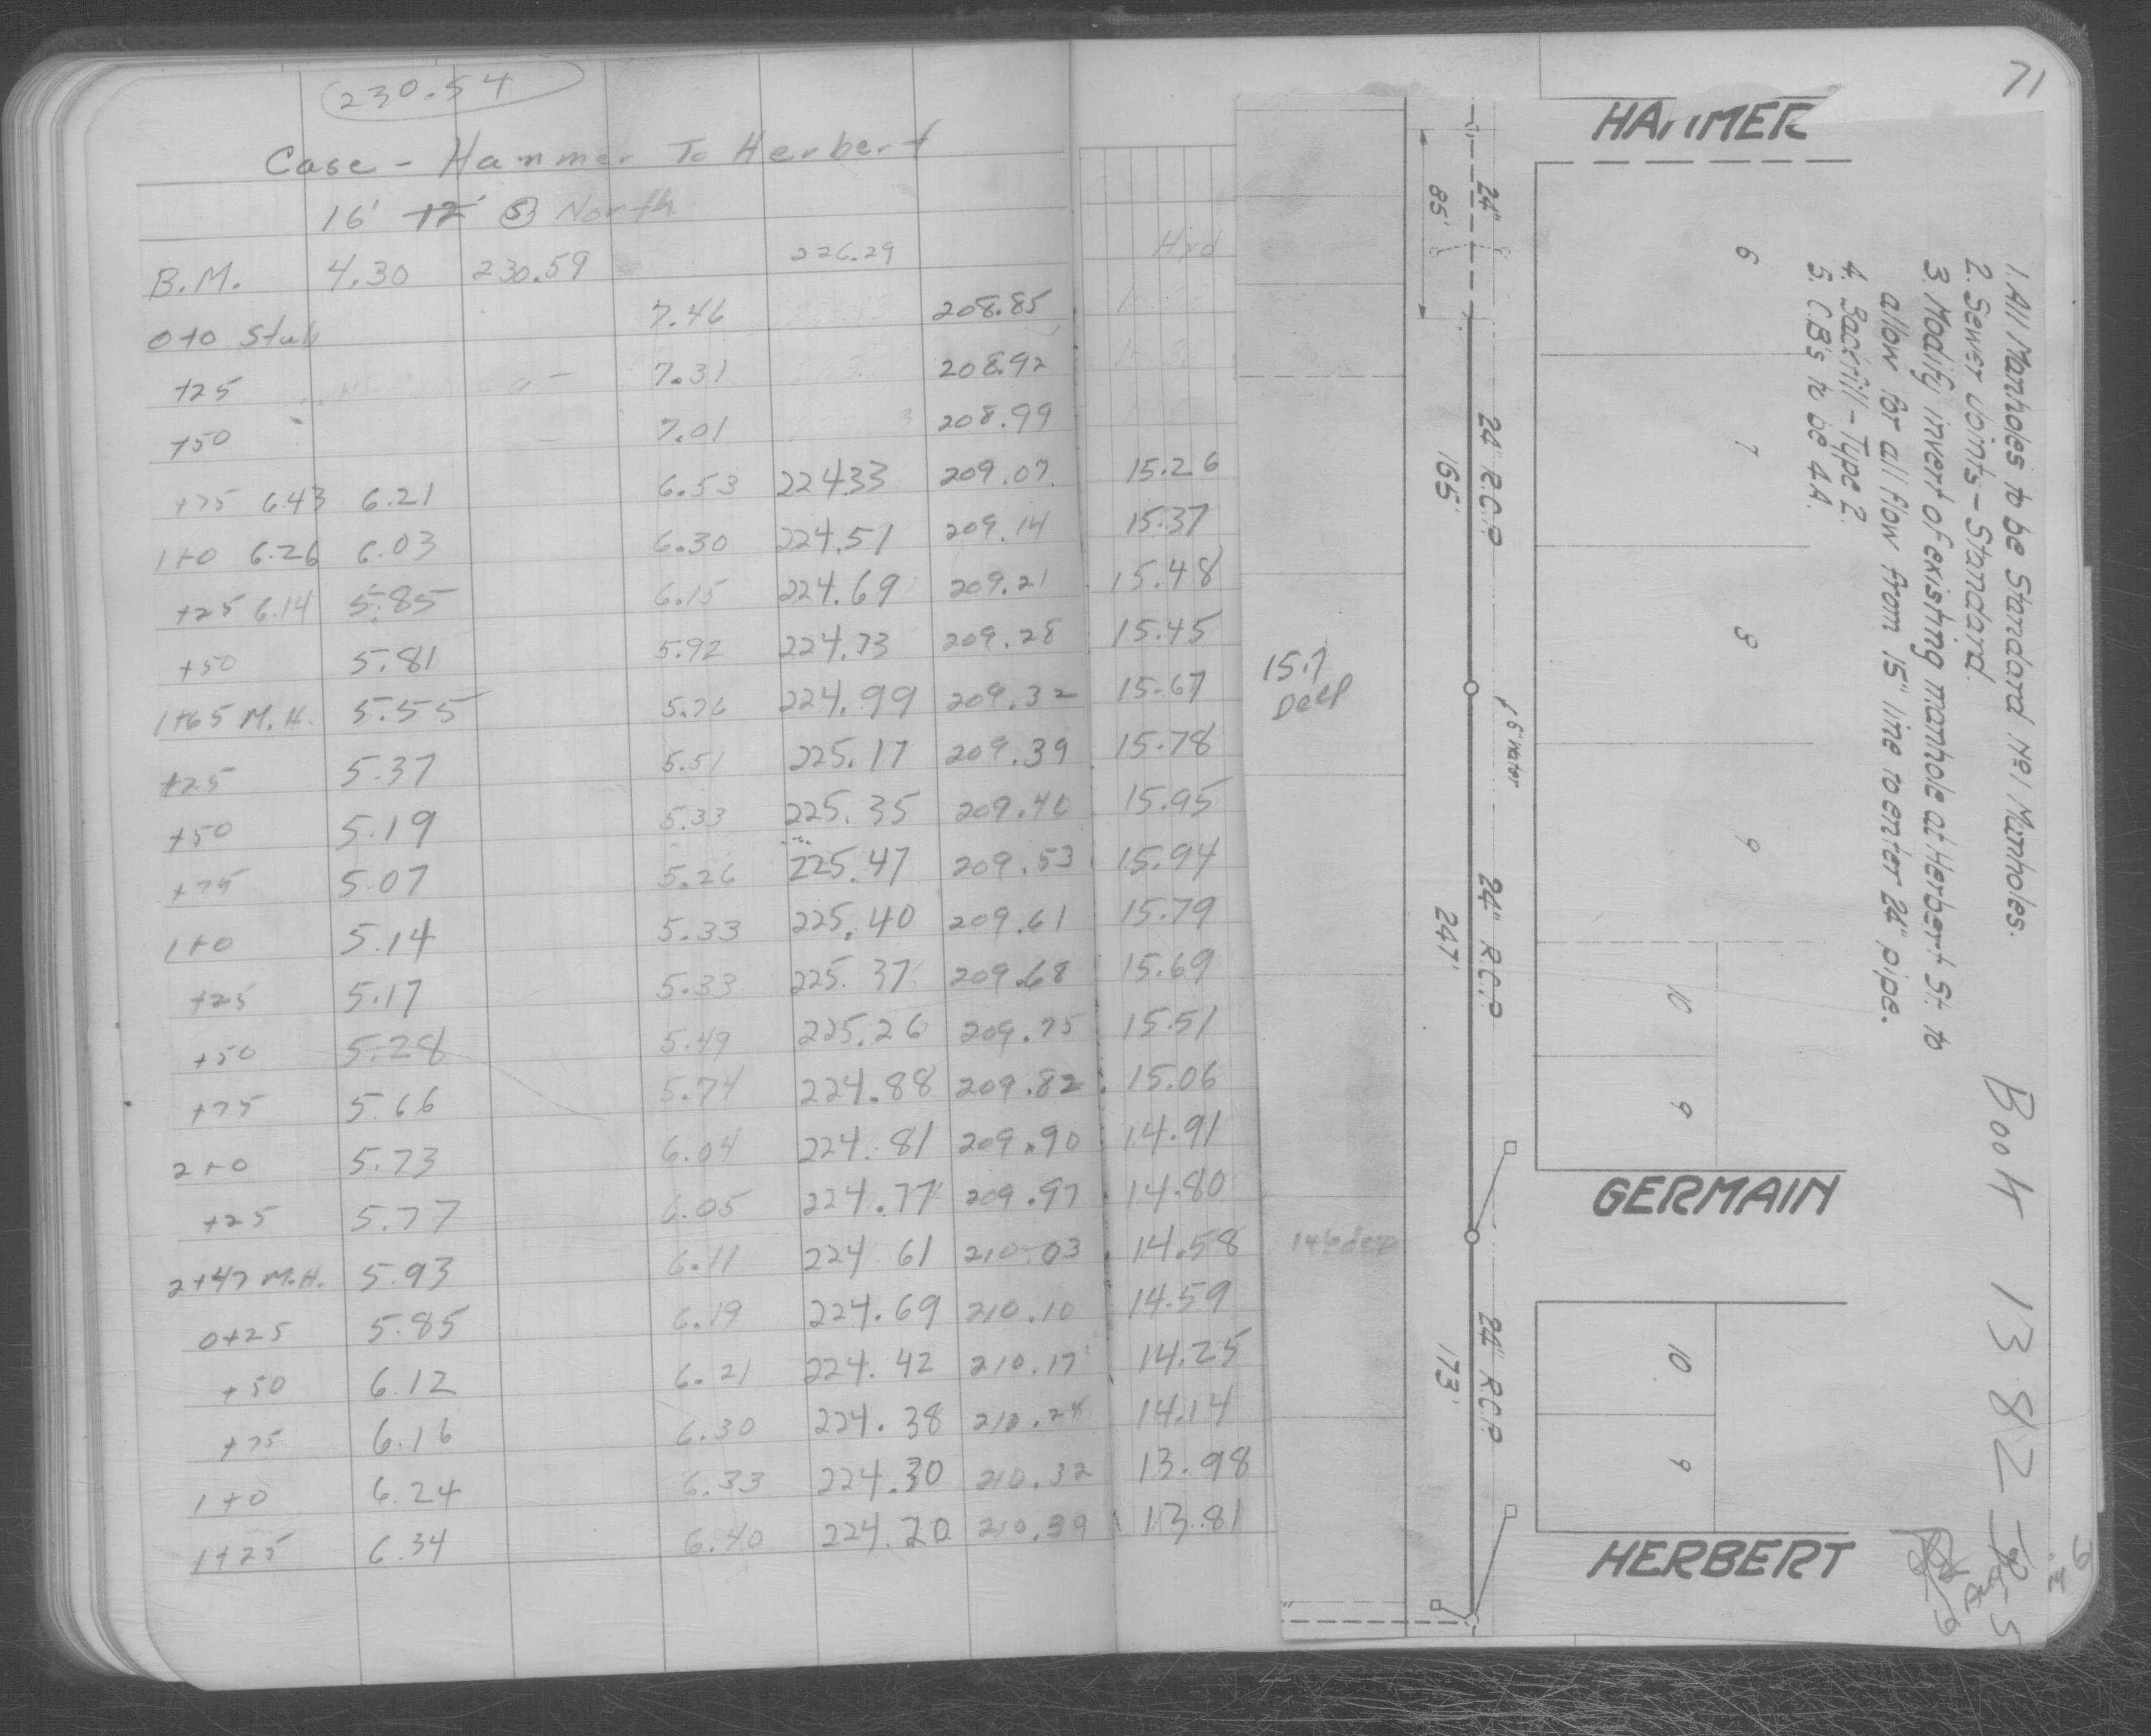 230.54
Case - Hammer To Herbert
16' 12' S North
B.M. 4.30 230.59 226.29 Hyd
0+0 Stub 7.46 208.85
+25 7.31 208.92
+50 7.01 208.99
+75 6.43 6.21 6.53 224.33 209.07 15.26
1+0 6.26 6.03 6.30 224.51 209.14 15.37
+25 6.14 5.85 6.15 224.69 209.21 15.48
+50 5.81 5.92 224.73 209.28 15.45
1+65 M.H. 5.55 5.76 224.99 209.32 15.67
+25 5.37 5.51 225.17 209.39 15.78
+50 5.19 5.33 225.35 209.40 15.95
+75 5.07 5.26 225.47 209.53 15.94
1+0 5.14 5.33 225.40 209.61 15.79
+25 5.17 5.33 225.37 209.68 15.69
+50 5.28 5.49 225.26 209.75 15.51
+75 5.66 5.74 224.88 209.82 15.06
2+0 5.73 6.04 224.81 209.90 14.91
+25 5.77 6.05 224.77 209.97 14.80
2+47 M.H. 5.93 6.11 224.61 210.03 14.58
0+25 5.85 6.19 224.69 210.10 14.59
+50 6.12 6.21 224.42 210.17 14.25
+75 6.16 6.30 224.38 210.24 14.14
1+0 6.24 6.33 224.30 210.32 13.98
1+25 6.34 6.40 224.20 210.39 13.81
71
15.7
Deep
14.6 deep
HAMMER
24"
85'
24" R.C.P.
165'
6" water
24" R.C.P.
247'
24" R.C.P.
173'
6
7
8
9
10
9
GERMAIN
10
9
HERBERT
1. All Manholes to be Standard No 1 Manholes.
2. Sewer Joints - Standard.
3. Modify invert of existing manhole at Herbert St. to
allow for all flow from 15" line to enter 24" pipe.
4. Backfill - Type 2.
5. C.B's to be 4A.
Book 1382